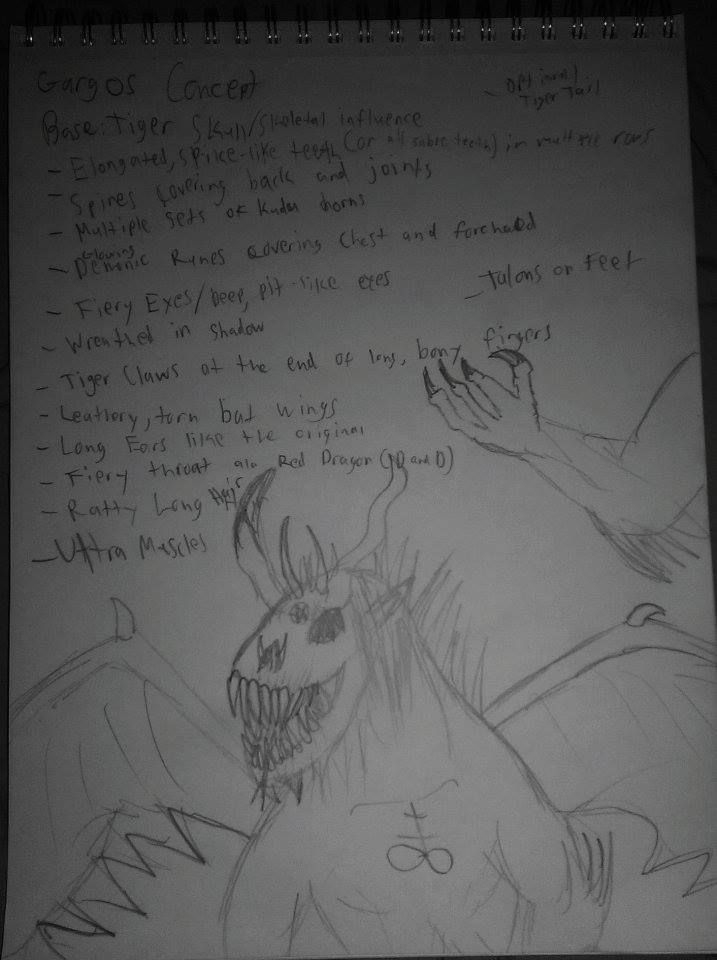 Gargos Concept
- Optional
Tiger Tail
Base: Tiger Skull/Skeletal influence
- Elongated, spike-like teeth (or all sabre teeth) in multiple rows
- Spines covering back and joints
- Multiple sets of Kudu horns
- Glowing Demonic Runes covering Chest and forehead
- Fiery Eyes/Deep, pit-like eyes
- Talons or Feet
- Wreathed in Shadow
- Tiger Claws at the end of long, bony fingers
- Leathery, torn bat wings
- Long Ears like the original
- Fiery throat ala Red Dragon (D and D)
- Ratty Long Hair
- Ultra Muscles